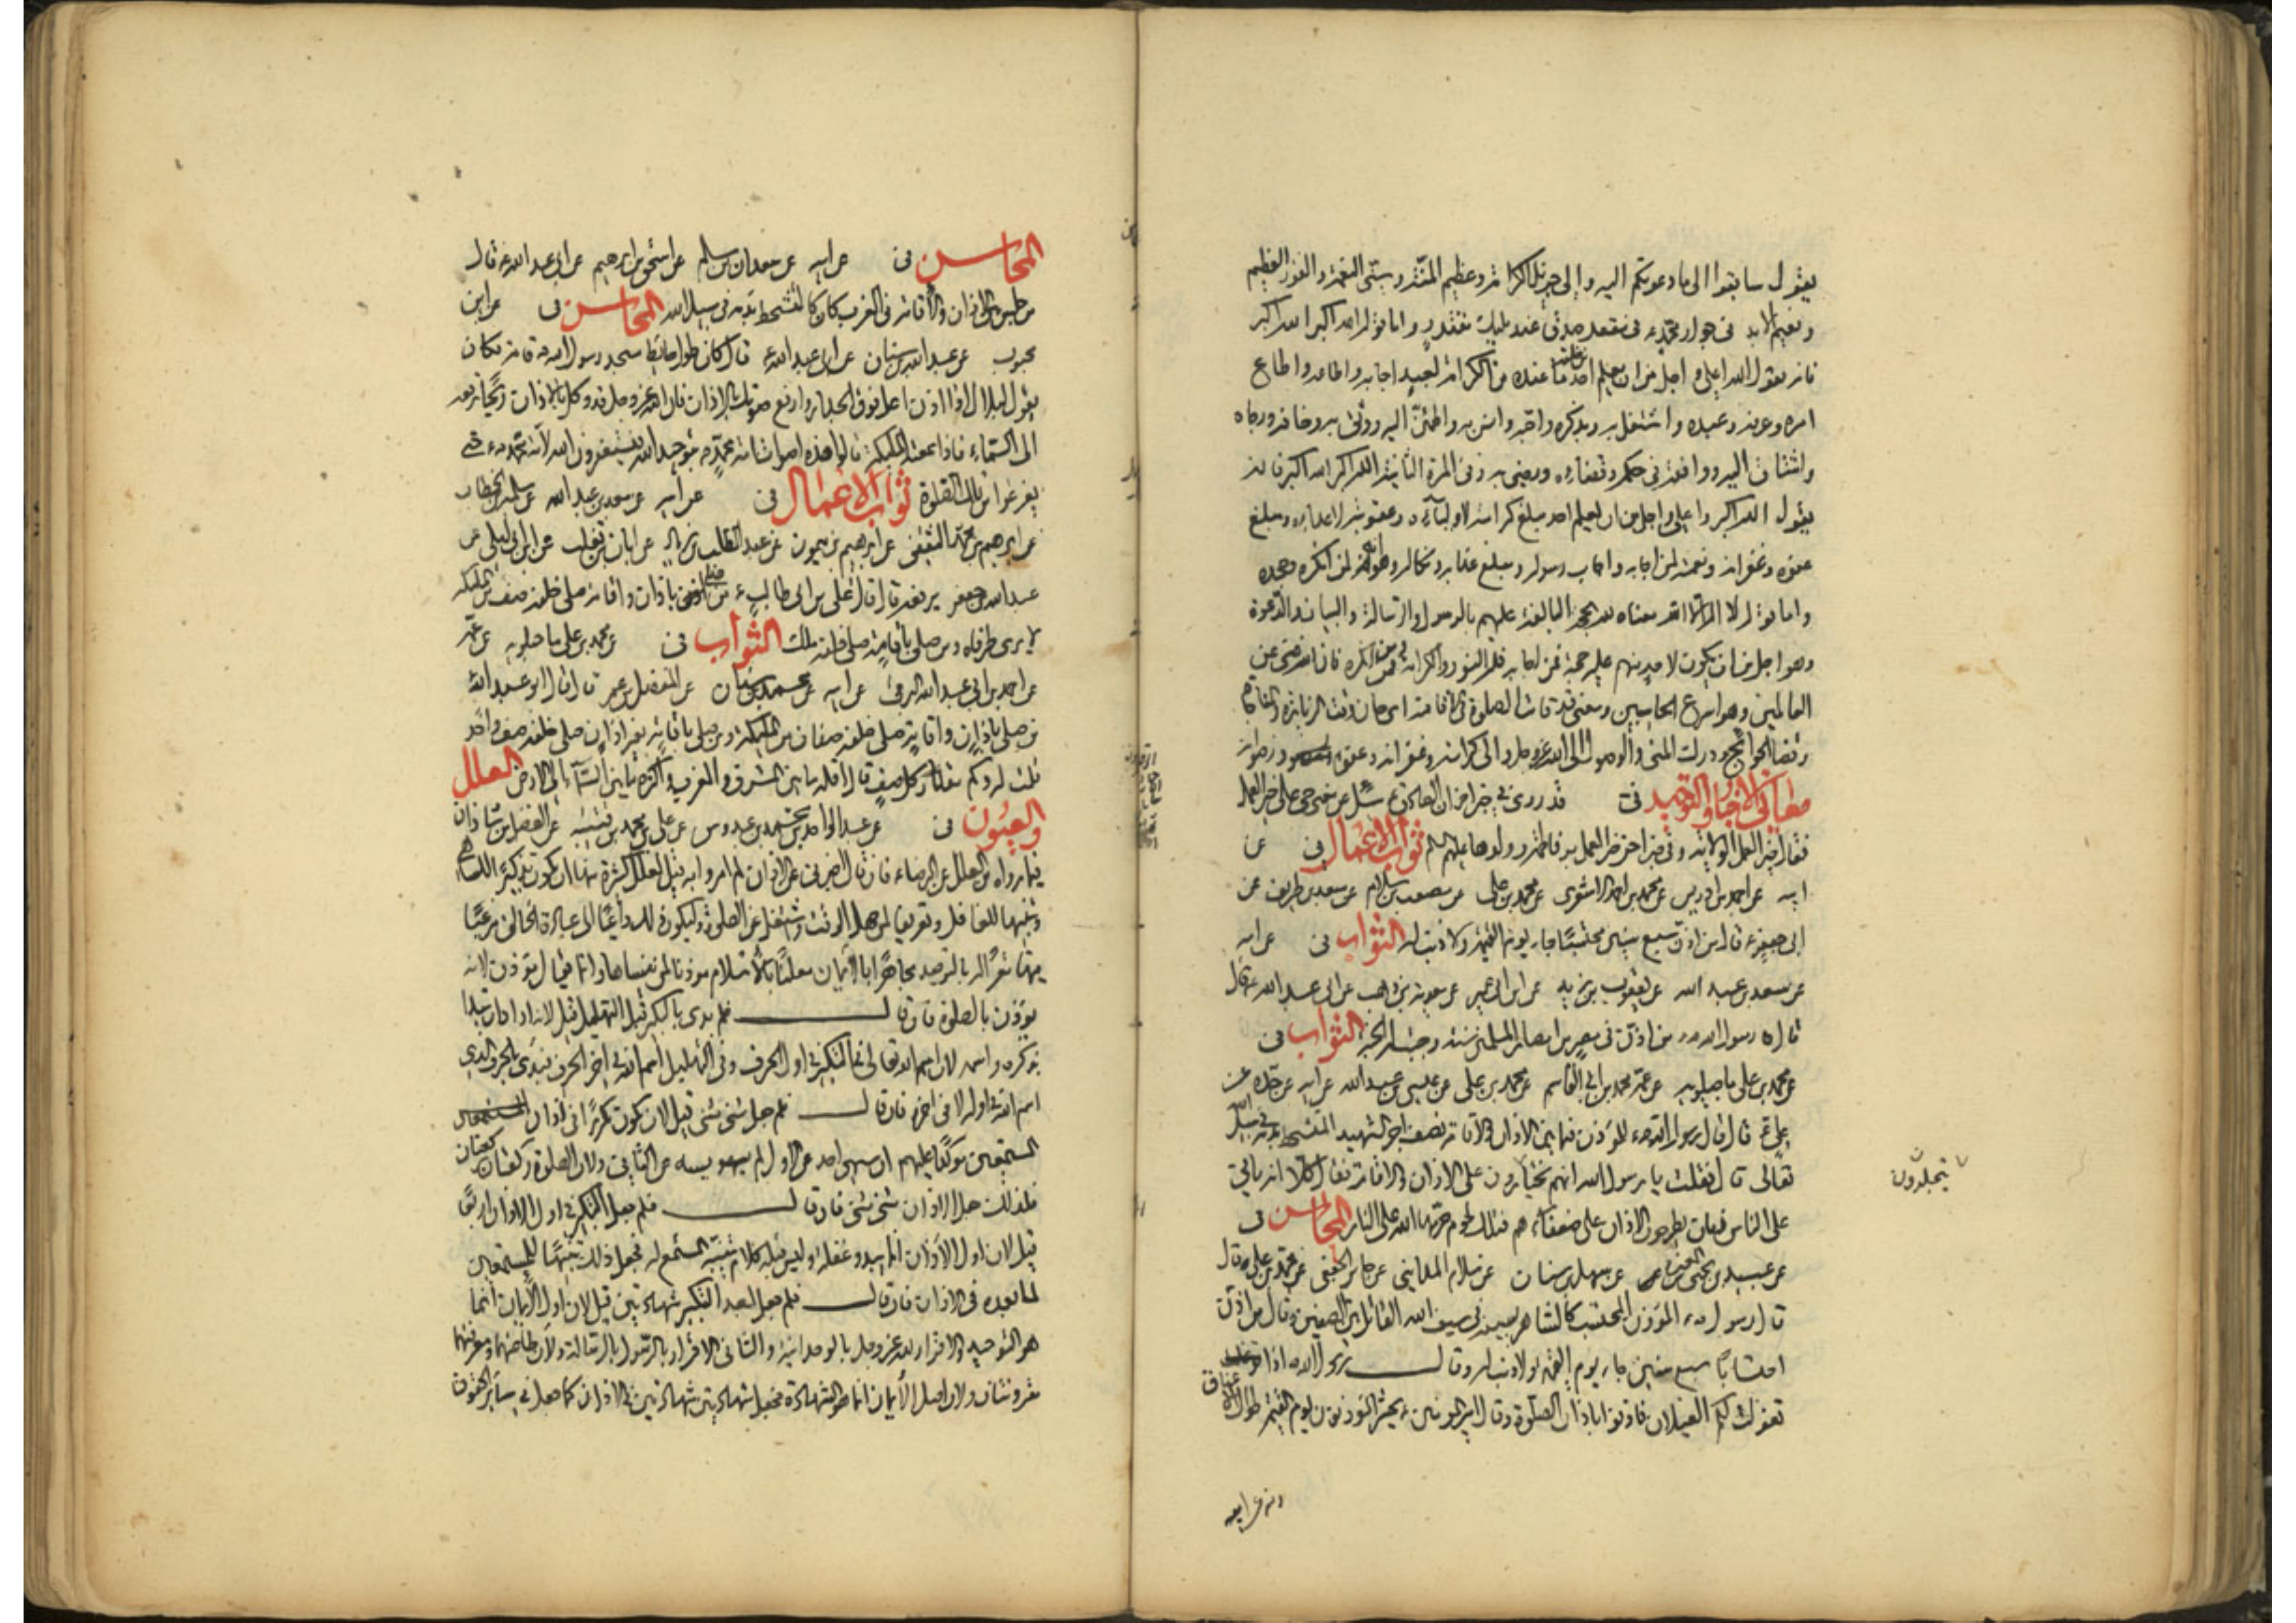 يقول سابقوا الى ما دعوتكم اليه والى جزيل الكرامة وعظيم المنة وسني النعمة والفوز العظيم
ونعيم الابد في جوار محمد ص في مقعد صدق عند مليك مقتدر واما قوله الله اكبر الله اكبر
فانه يقول الله اعلى واجل من ان يعلم احد من خلقه ما عنده من الكرامة لعبد اجابه واطاعه واطاع
امره وعرفه وعبده واشتغل به وبذكره واحبه وانس به واطمئن اليه ووثق به وخافه ورجاه
واشتاق اليه ووافقه في حكمه وقضاءه ورضي به وفي المرة الثانية الله اكبر الله اكبر فانه
يقول الله اكبر واعلى واجل من ان يعلم احد مبلغ كرامته لاوليآءه وعقوبته لاعدائه ومبلغ
عفوه وغفرانه ونعمته لمن اجابه واجاب رسوله ومبلغ عذابه ونكاله وهوانه لمن انكره وجحده
واما قوله لا اله الا الله معناه لله الحجة البالغة عليهم بالرسول والرسالة والبيان والدعوة
وهو اجل من ان يكون لاحد منهم عليه حجة فمن اجابه فله النور والكرامة ومن انكره فان الله غني عن
العالمين وهو اسرع الحاسبين ومعنى قد قامت الصلوة في الاقامة اي حان وقت الزيارة والمناجاة
وقضاء الحوائج ودرك المنى والوصول الى الله عز وجل والى كرامته وغفرانه وعفوه ورضوانه
معاني الاخبار والتوحيد في قد روي في خبر اخر ان الصادق ع سئل عن معنى حي على خير العمل
فقال خير العمل الولاية وفي خبر اخر خير العمل بر فاطمة وولدها عليهم السلم ثواب الاعمال في عن
ابيه عن احمد بن ادريس عن محمد بن احمد الاشعري عن محمد بن علي عن مصعب بن سلام عن سعد بن طريف عن
ابي جعفر ع قال من اذن سبع سنين محتسبا جاء يوم القيمة ولا ذنب له الثواب في عن ابيه
عن سعد بن عبد الله عن يعقوب بن يزيد عن ابن ابي عمير عن معوية بن وهب عن ابي عبد الله ع قال
قال رسول الله ص من اذن في مصر من امصار المسلمين سنة وجبت له الجنة الثواب في
عن محمد بن علي ماجيلويه عن عمه محمد بن ابي القاسم عن محمد بن علي عن عيسى بن عبد الله عن ابيه عن جده عن
علي ع قال قال رسول الله ص للمؤذن فيما بين الاذان والاقامة نصف اجر الشهيد المتشحط بدمه في سبيل الله
تعالى قال فقلت يا رسول الله انهم يختارون على الاذان والاقامة فقال كلا انه ياتي
يجتلدون
على الناس زمان يطرحون الاذان على ضعفاءهم فتلك لحوم حرمها الله على النار المحاسن في
عن عبيد بن يحيى بن المغيرة عن سهل بن سنان عن سلام المدايني عن جابر الجعفي عن محمد بن علي ع قال
قال رسول ص المؤذن المحتسب كالشاهر بسيفه في سبيل الله القاتل بين الصفين وقال من اذن
احتسابا سبع سنين جاء يوم القيمة ولا ذنب له وقال رسول الله ص اذا
تغولت لكم الغيلان فاذنوا باذان الصلوة وقال امير المؤمنين ع يحشر المؤذنون يوم القيمة طوال الاعناق
المحاسن في عن ابيه عن سعدان بن مسلم عن اسحق بن ابرهيم عن ابي عبد الله ع قال
من جلس بين الاذان والاقامة في المغرب كان كالمتشحط بدمه في سبيل الله المحاسن في عن ابن
محبوب عن عبد الله بن سنان عن ابي عبد الله ع قال كان طول حايط مسجد رسول الله ص قامة فكان
يقول لبلال اذا اذن اعل فوق الجدار وارفع صوتك بالاذان فان الله عز وجل قد وكل بالاذان ريحا ترفعه
الى السماء فاذا سمعته الملئكة قالوا هذه اصوات امة محمد ص بتوحيد الله فيستغفرون الله لامة محمد ص حتى
يفرغوا من تلك الصلوة ثواب الاعمال في عن ابيه عن سعد بن عبد الله عن سلمة بن الخطاب
عن ابرهيم بن محمد الثقفي عن ابرهيم بن ميمون عن عبد المطلب بن زياد عن ابان بن تغلب عن ابن ابي ليلى عن
عبد الله بن جعفر يرفعه قال قال علي بن ابي طالب ع من صلى باذان واقامة صلى خلفه صف من الملئكة
لا يرى طرفاه ومن صلى باقامة صلى خلفه ملك الثواب في عن محمد بن علي ماجيلويه عن عمه
عن احمد بن ابي عبد الله البرقي عن ابيه عن محمد بن سنان عن المفضل بن عمر قال قال ابو عبد الله
من صلى باذان واقامة صلى خلفه صفان من الملئكة ومن صلى باقامة بغير اذان صلى خلفه صف واحد
قلت له وكم مقدار كل صف قال اقله ما بين المشرق والمغرب واكثره ما بين السمآء الى الارض العلل
والعيون في عن عبد الواحد بن محمد بن عبدوس عن علي بن محمد بن قتيبة عن الفضل بن شاذان
فيما رواه من العلل عن الرضاء فان قال اخبرني عن الاذان لم امروا به قيل لعلل كثيرة منها ان يكون تذكيرا للساهي
وتنبيها للغافل وتعريفا لمن جهل الوقت واشتغل عن الصلوة وليكون ذلك داعيا الى عبادة الخالق مرغبا
فيها مقرا له بالتوحيد مجاهرا بالايمان معلنا بالاسلام موذنا لمن نسيها وانما يقال موذن لانه
يوذن بالصلوة فان قال فلم بدي بالتكبير قبل التهليل قيل لانه اراد ان يبدا
بذكره واسمه لان اسم الله تعالى في التكبير في اول الحرف وفي التهليل اسم الله في اخر الحرف فبدي بالحرف الذي
اسم الله في اوله لا في اخره فان قال فلم جعل مثنى مثنى قيل لان يكون تكررا في اذان
المستمعين موكدا عليهم ان سهى احد عن الاول لم يسه عن الثاني ولان الصلوة ركعتان ركعتان
فلذلك جعل الاذان مثنى مثنى فان قال فلم جعل التكبير في اول الاذان اربعا
قيل لان اول الاذان انما يبدو غفلة وليس قبله كلام ينبه المستمع له فجعل ذلك تنبيها للمستمعين
لما بعده في الاذان فان قال فلم جعل بعد التكبير شهادتين قيل لان اول الايمان انما
هو التوحيد والاقرار لله عز وجل بالوحدانية والثاني الاقرار بالرسول بالرسالة ولان طاعتهما ومعرفتهما
مقرونتان ولان اصل الايمان انما هو الشهادة فجعل شهادتين شهادتين في الاذان كما جعل في سائر الحقوق